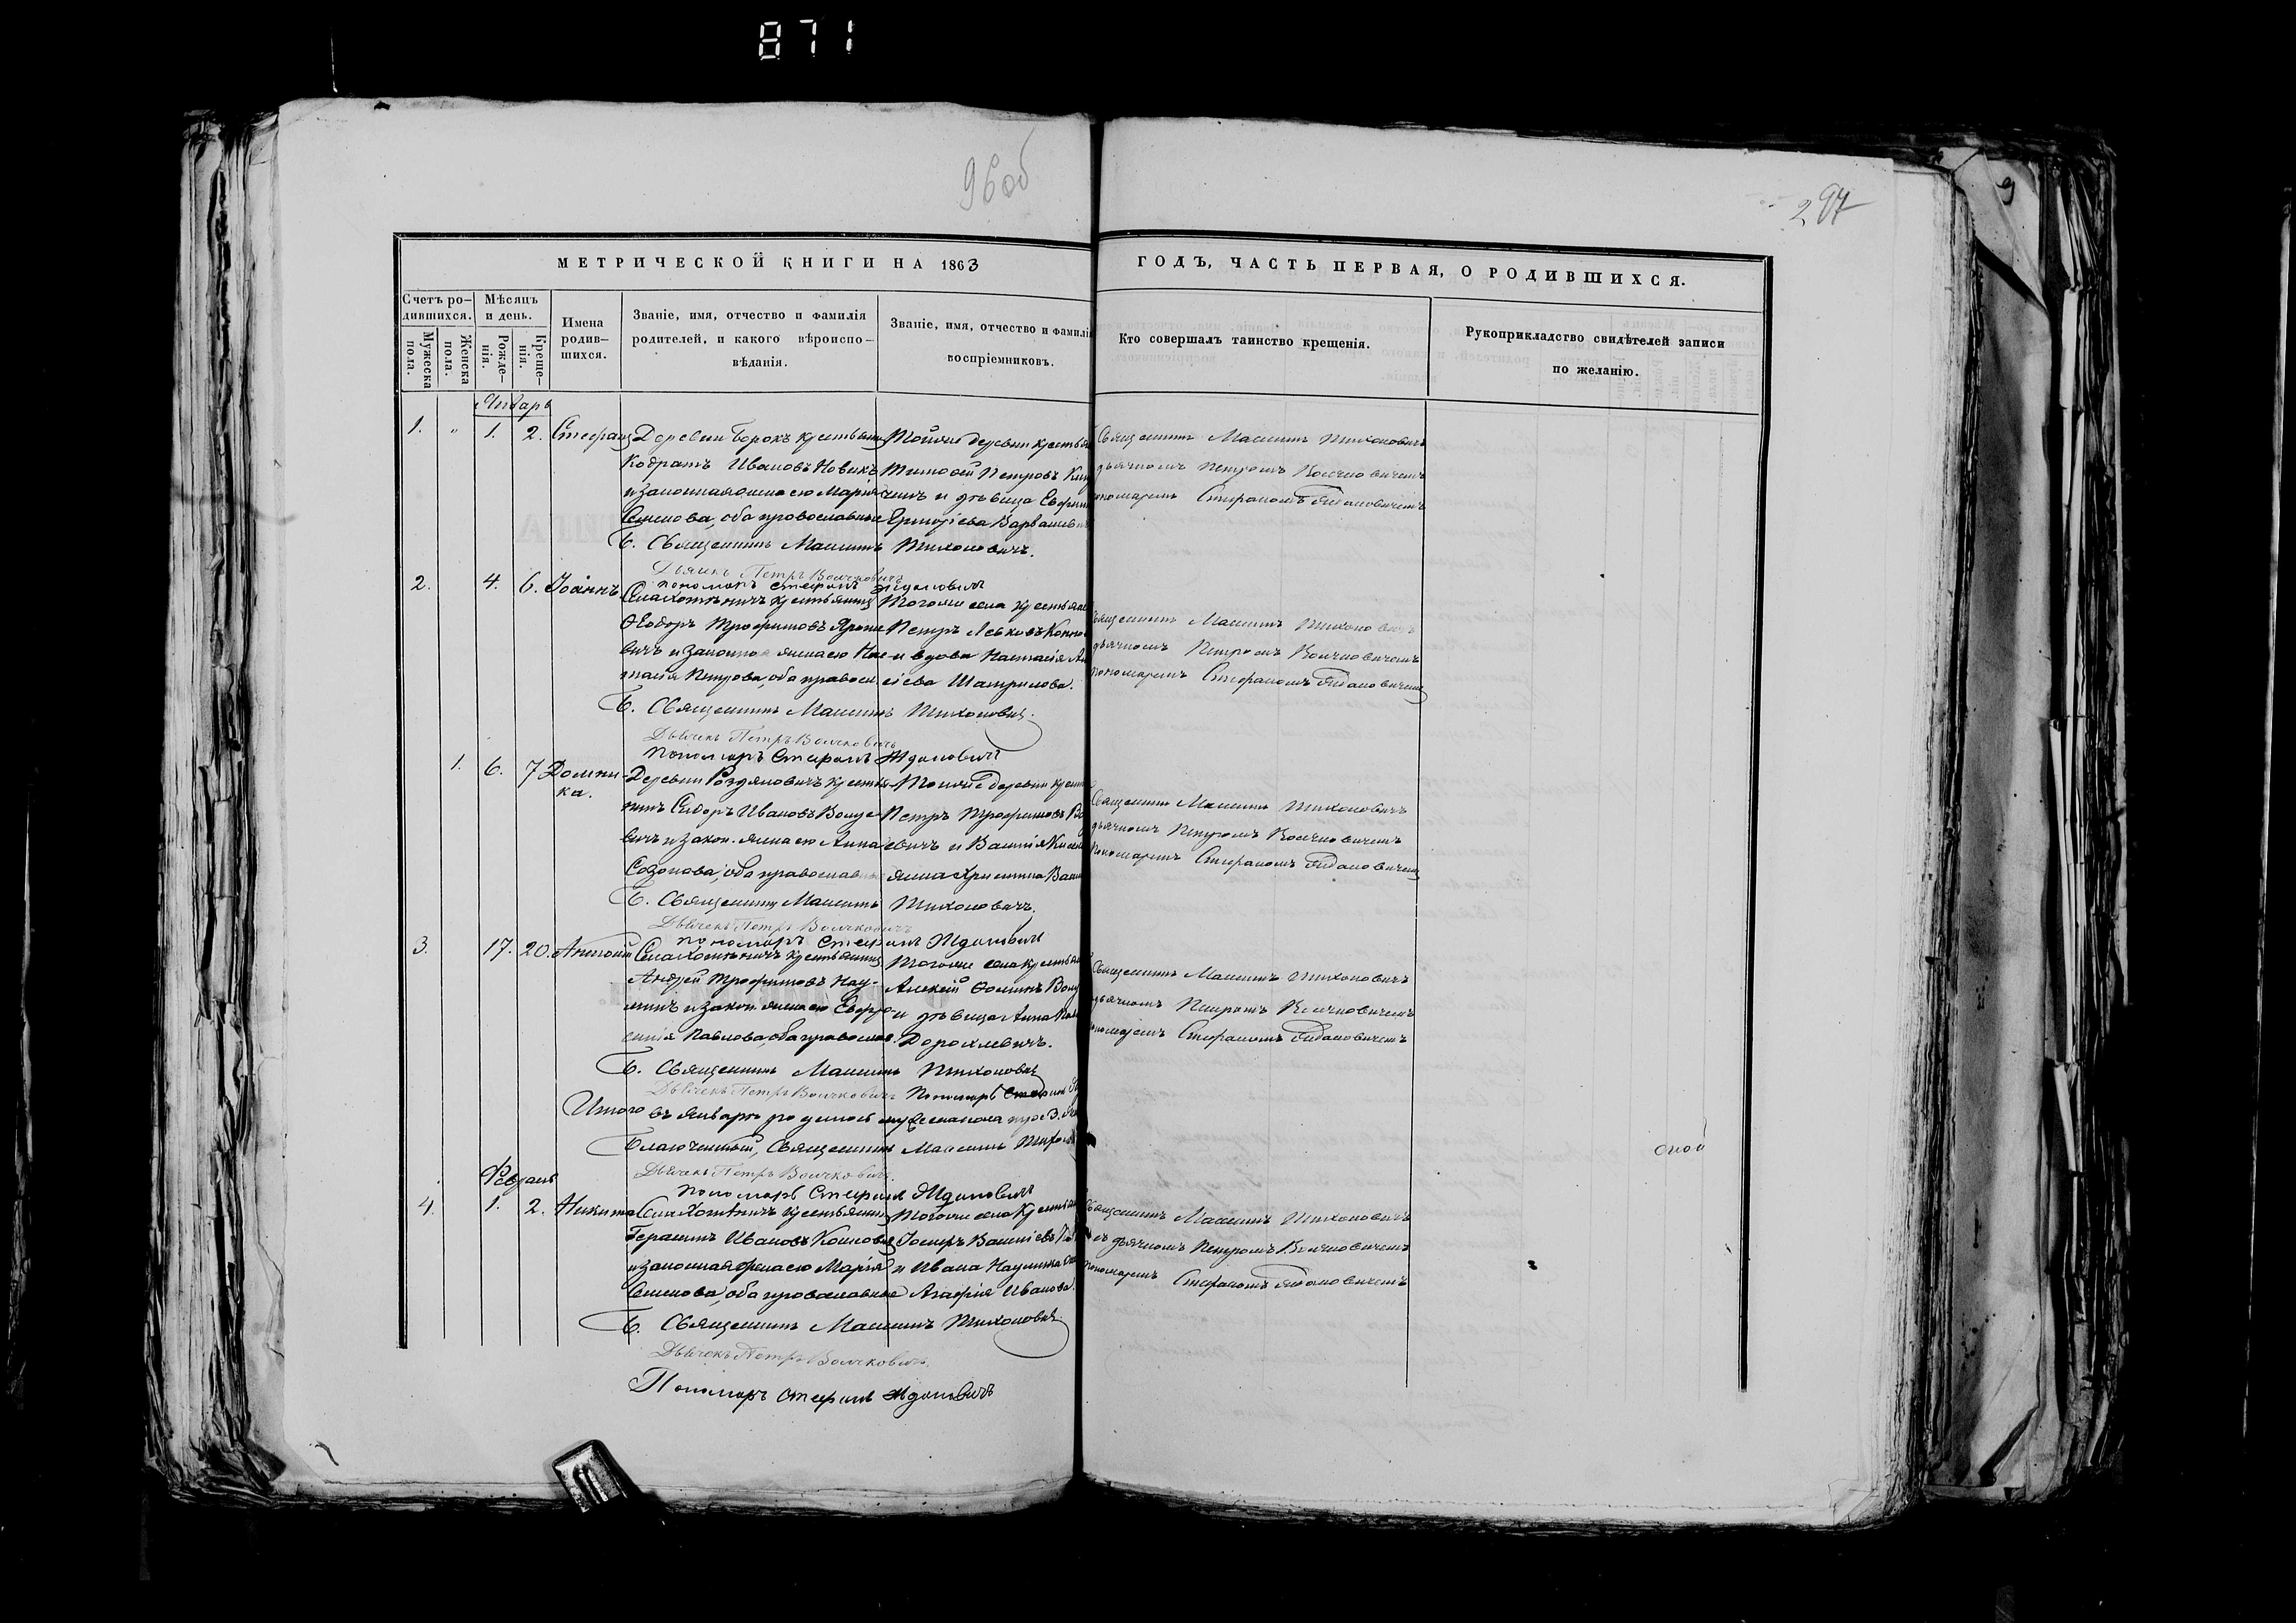 871
96об
297
МЕТРИЧЕСКОЙ КНИГИ НА 1863
ГОДЪ, ЧАСТЬ ПЕРВАЯ, О РОДИВШИХСЯ.
Счетъ ро-
дившихся.
Мужеска
пола.
Женска
пола.
Мѣсяцъ
и день.
Рожде-
нія.
Креще-
нія.
Имена
родив-
шихся.
Званіе, имя, отчество и фамилія
родителей, и какого вѣроиспо-
вѣданія.
Званіе, имя, отчество и фамилі
воспріемниковъ.
Кто совершалъ таинство крещенія.
Рукоприкладство свидѣтелей записи
по желанію.
Январь
1. " 1. 2. Стефанъ
Деревни Борокъ крестьянинъ
Кодратъ Ивановъ Новикъ
и законная жена его Марія
Семенова, оба православные
Тойже деревни крестья
Тимофей Петровъ
и дѣвица
Григорієва
Священникъ Максимъ Тихоновичъ
дьячкомъ Петромъ Волчковичемъ
пономаремъ Стефаномъ Ждановичемъ
Б. Священникъ Максимъ Тихоновичъ.
Дьячекъ Петръ Волчковичъ
Пономарь Стефанъ Ждановичъ
2. 4. 6. Іоаннъ
Села Хотѣничъ крестьянинъ
Ѳеодоръ Трофимовъ
вичъ и законная жена его Нас-
тасія Петрова, оба правосл.
Тогоже села крестьян
Петръ
и вдова Настасія
Священникъ Максимъ Тихоновичъ
дьячкомъ Петромъ Волчковичемъ
пономаремъ Стефаномъ Ждановичемъ
Б. Священникъ Максимъ Тихоновичъ.
Дьячекъ Петръ Волчковичъ
Пономарь Стефанъ Ждановичъ
1. 6. 7 Домни-
ка.
Деревни Роздяловичъ крестья-
нинъ Сидоръ Ивановъ
вичъ и закон. жена его Анна
Созонова, оба православн
Тойже деревни крест
Петръ Трофимовъ
евичъ и Василія
жена Христина
Священникъ Максимъ Тихоновичъ
дьячкомъ Петромъ Волчковичемъ
пономаремъ Стефаномъ Ждановичемъ
Б. Священникъ Максимъ Тихоновичъ.
Дьячекъ Петръ Волчковичъ
Пономарь Стефанъ Ждановичъ
3. 17. 20. Антоній
Села Хотѣничъ крестьянинъ
Андрей Трофимовъ Нау-
микъ и закон. жена его Евфро-
синія Павлова, оба православ.
Тогоже села крестьян
Алексѣй Ѳоминъ
и дѣвица Анна
Священникъ Максимъ Тихоновичъ
дьячкомъ Петромъ Волчковичемъ
пономаремъ Стефаномъ Ждановичемъ
Б. Священникъ Максимъ Тихоновичъ
Дьячекъ Петръ Волчковичъ Пономарь Стефанъ
Итого въ январѣ родилось мужеска пола трое 3.
Благочинный, Священникъ Максимъ Тихонов
Дьячекъ Петръ Волчковичъ.
Пономарь Стефанъ Ждановичъ
Февраль
4. 1. 2. Никита
Села Хотѣничъ крестьянинъ
Герасимъ Ивановъ
и законная жена его Марія
Семенова, оба православные
Тогоже села крестьян
Іосифъ Василіевъ
и Ивана Наумика
Агафія Иванова.
Священникъ Максимъ Тихоновичъ
съ дьячкомъ Петромъ Волчковичемъ
пономаремъ Стефаномъ Ждановичемъ
Б. Священникъ Максимъ Тихоновичъ
Дьячекъ Петръ Волчковичъ.
Пономарь Стефанъ Ждановичъ